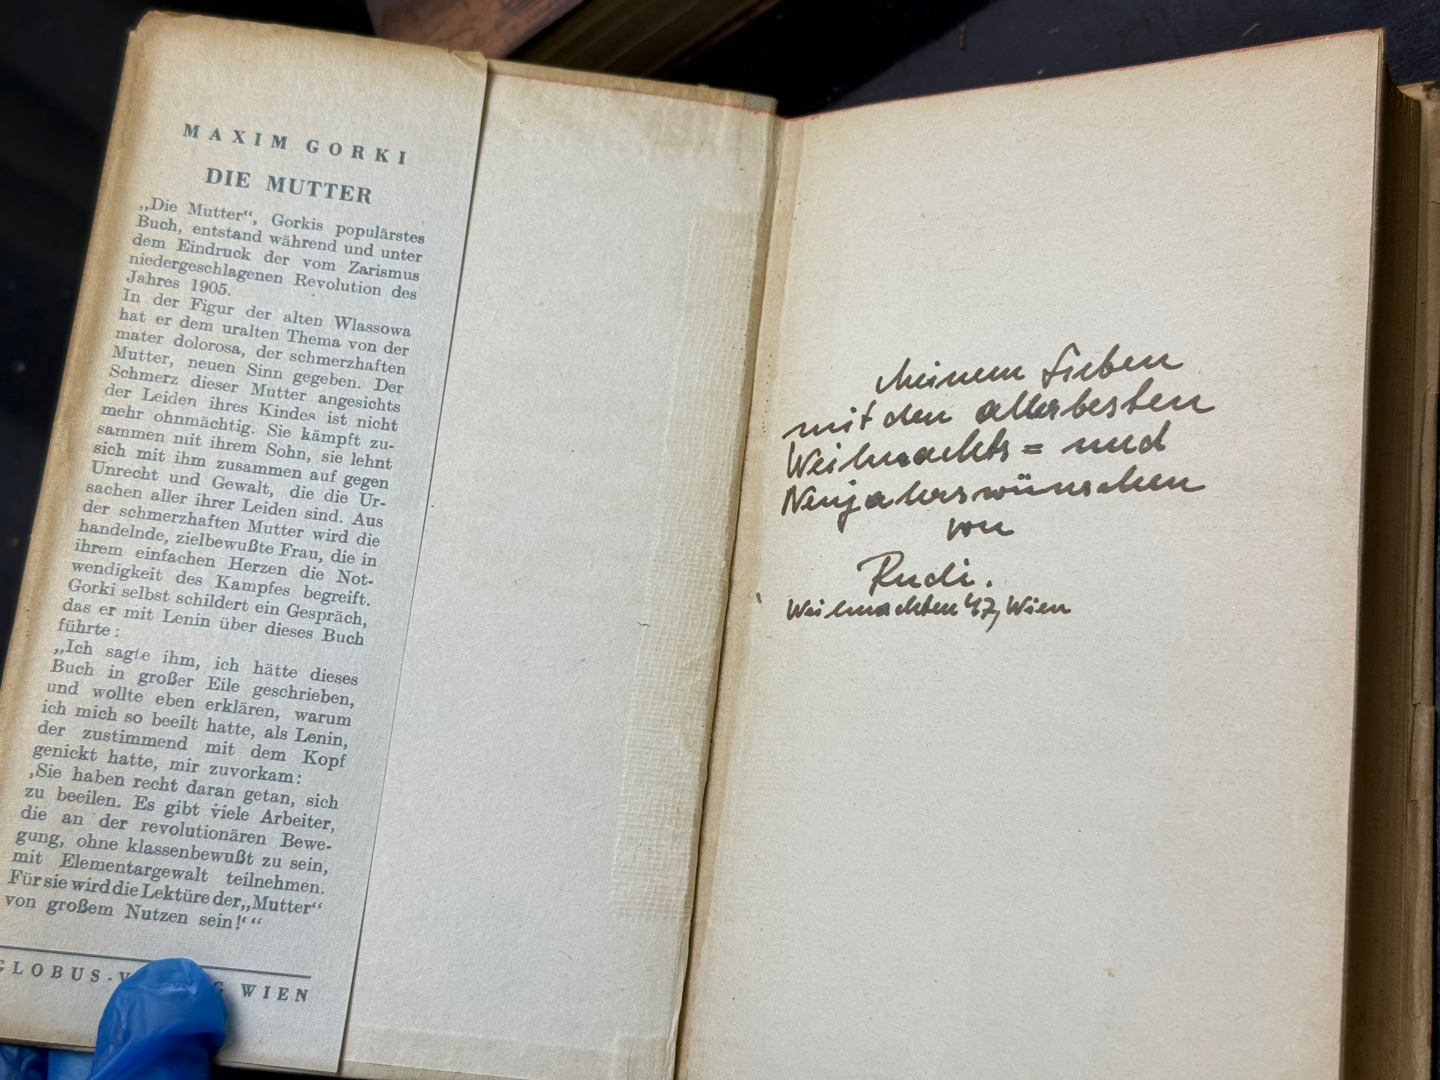 MAXIM GORKI
DIE MUTTER
„Die Mutter“, Gorkis populärstes
Buch, entstand während und unter
dem Eindruck der vom Zarismus
niedergeschlagenen Revolution des
Jahres 1905.
In der Figur der alten Wlassowa
hat er dem uralten Thema von der
mater dolorosa, der schmerzhaften
Mutter, neuen Sinn gegeben. Der
Schmerz dieser Mutter angesichts
der Leiden ihres Kindes ist nicht
mehr ohnmächtig. Sie kämpft zu-
sammen mit ihrem Sohn, sie lehnt
sich mit ihm zusammen auf gegen
Unrecht und Gewalt, die die Ur-
sachen aller ihrer Leiden sind. Aus
der schmerzhaften Mutter wird die
handelnde, zielbewußte Frau, die in
ihrem einfachen Herzen die Not-
wendigkeit des Kampfes begreift.
Gorki selbst schildert ein Gespräch,
das er mit Lenin über dieses Buch
führte:
„Ich sagte ihm, ich hätte dieses
Buch in großer Eile geschrieben,
und wollte eben erklären, warum
ich mich so beeilt hatte, als Lenin,
der zustimmend mit dem Kopf
genickt hatte, mir zuvorkam:
‚Sie haben recht daran getan, sich
zu beeilen. Es gibt viele Arbeiter,
die an der revolutionären Bewe-
gung, ohne klassenbewußt zu sein,
mit Elementargewalt teilnehmen.
Für sie wird die Lektüre der „Mutter“
von großem Nutzen sein!‘“
GLOBUS- WIEN
Meinem Lieben
mit den allerbesten
Weihnachts= und
Neujahrswünschen
von
Rudi.
Weihnachten 47, Wien